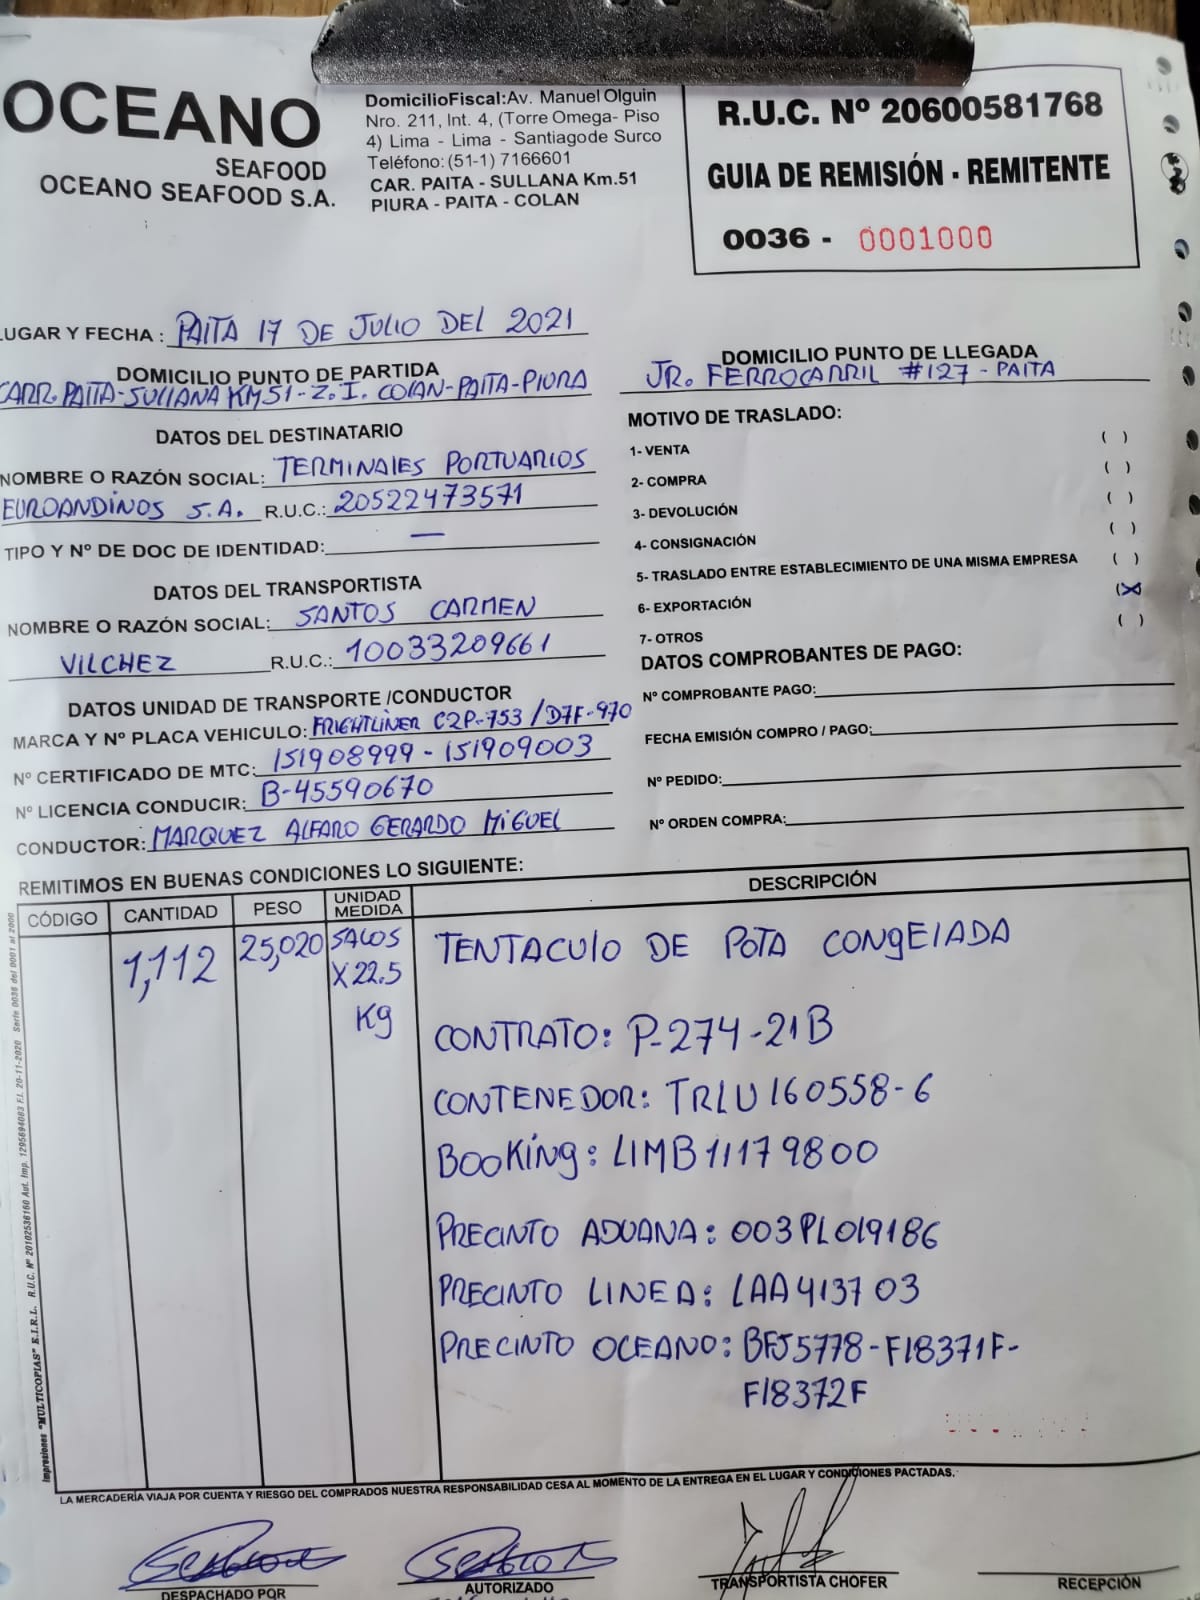 OCEANO
SEAFOOD
OCEANO SEAFOOD S.A.
DomicilioFiscal:Av. Manuel Olguin
Nro. 211, Int. 4, (Torre Omega- Piso
4) Lima - Lima - Santiagode Surco
Teléfono:(51-1) 7166601
CAR. PAITA - SULLANA Km.51
PIURA - PAITA - COLAN
R.U.C. Nº 20600581768
GUIA DE REMISIÓN - REMITENTE
0036 - 0001000
LUGAR Y FECHA : PAITA 17 DE JULIO DEL 2021
DOMICILIO PUNTO DE PARTIDA
CARR. PAITA-SULLANA KM51-Z.I. COLAN-PAITA-PIURA
DOMICILIO PUNTO DE LLEGADA
JR. FERROCARRIL #127 - PAITA
DATOS DEL DESTINATARIO
NOMBRE O RAZÓN SOCIAL: TERMINALES PORTUARIOS
EUROANDINOS S.A. R.U.C.: 20522473571
TIPO Y Nº DE DOC DE IDENTIDAD: —
DATOS DEL TRANSPORTISTA
NOMBRE O RAZÓN SOCIAL: SANTOS CARMEN
VILCHEZ R.U.C.: 10033209661
DATOS UNIDAD DE TRANSPORTE /CONDUCTOR
MARCA Y Nº PLACA VEHICULO: FRIGHTLINER C2P-753 / D7F-970
Nº CERTIFICADO DE MTC: 151908999 - 151909003
Nº LICENCIA CONDUCIR: B-45590670
CONDUCTOR: MARQUEZ ALFARO GERARDO MIGUEL
MOTIVO DE TRASLADO:
1- VENTA ( )
2- COMPRA ( )
3- DEVOLUCIÓN ( )
4- CONSIGNACIÓN ( )
5- TRASLADO ENTRE ESTABLECIMIENTO DE UNA MISMA EMPRESA ( )
6- EXPORTACIÓN (X)
7- OTROS ( )
DATOS COMPROBANTES DE PAGO:
Nº COMPROBANTE PAGO:
FECHA EMISIÓN COMPRO / PAGO:
Nº PEDIDO:
Nº ORDEN COMPRA:
REMITIMOS EN BUENAS CONDICIONES LO SIGUIENTE:
CÓDIGO CANTIDAD PESO UNIDAD MEDIDA DESCRIPCIÓN
1,112 25,020 SACOS TENTACULO DE POTA CONGELADA
X 22.5
Kg
CONTRATO: P-274-21B
CONTENEDOR: TRLU160558-6
BOOKING: LIMB11179800
PRECINTO ADUANA: 003PL019186
PRECINTO LINEA: LAA413703
PRECINTO OCEANO: BFJ5778-F18371F-
F18372F
Impresiones "MULTICOPIAS" E.I.R.L. R.U.C. Nº 20102536160 Aut. Imp. 1295694083 F.I. 20-11-2020 Serie 0036 del 0001 al 2000
LA MERCADERÍA VIAJA POR CUENTA Y RIESGO DEL COMPRADOS NUESTRA RESPONSABILIDAD CESA AL MOMENTO DE LA ENTREGA EN EL LUGAR Y CONDICIONES PACTADAS.
DESPACHADO POR
AUTORIZADO
TRANSPORTISTA CHOFER
RECEPCIÓN